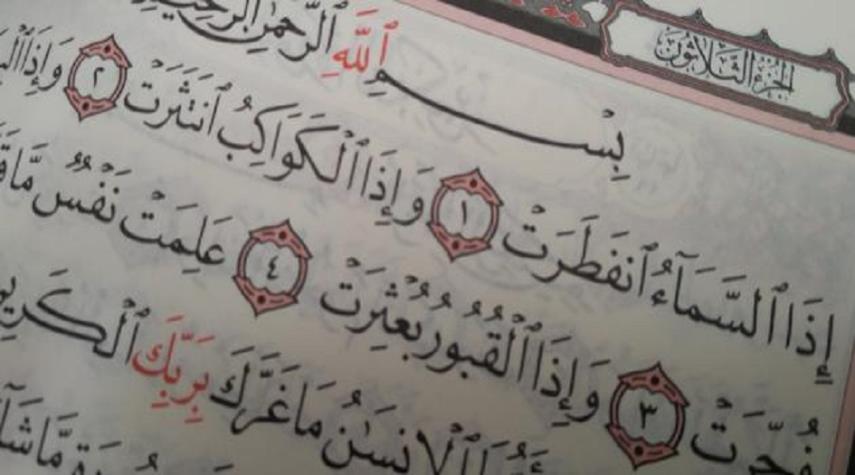 الجُزْءُ الثَّلَاثُونَ
بِسْمِ ٱللَّهِ ٱلرَّحْمَٰنِ ٱلرَّحِيمِ
إِذَا ٱلسَّمَآءُ ٱنفَطَرَتْ ١ وَإِذَا ٱلْكَوَاكِبُ ٱنتَثَرَتْ ٢ وَإِذَا
فُجِّرَتْ ٣ وَإِذَا ٱلْقُبُورُ بُعْثِرَتْ ٤ عَلِمَتْ نَفْسٌ مَّا
ٱلْإِنسَٰنُ مَا غَرَّكَ بِرَبِّكَ ٱلْكَرِيمِ
مَّا شَآءَ